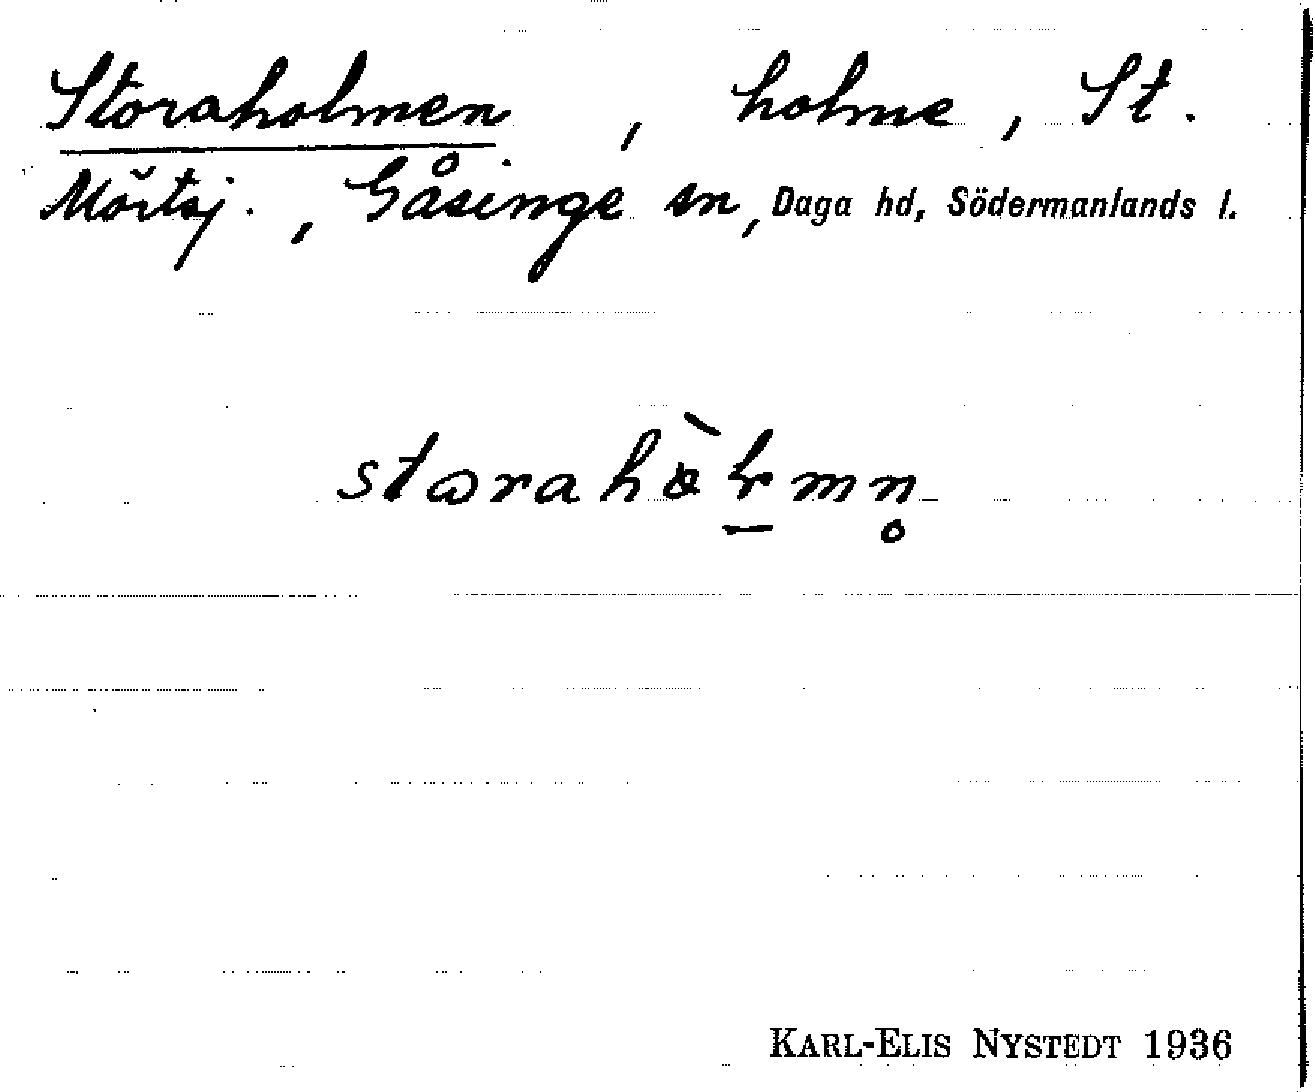 Storaholmen, holme, St.
Mörtsj., Gåsinge sn, Daga hd, Södermanlands l.
KARL-ELIS NYSTEDT 1936